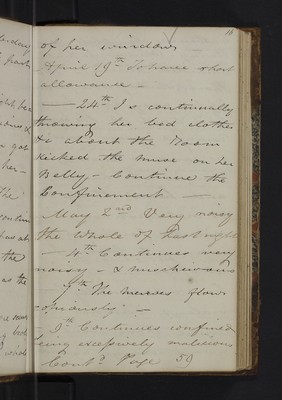 18
of her window —
April 19th To have short
allowance —
— 24th Is continually
throwing her bed clothes
&c about the Room
kicked the nurse on her
Belly — Continue the
Confinement —
May 2nd Very noisy
the Whole of Last night
— 4th Continues very
noisy — & mischievous
— 7th The menses flow
copiously —
— 9th Continues confined
being excessively malicious
Contd Page 59